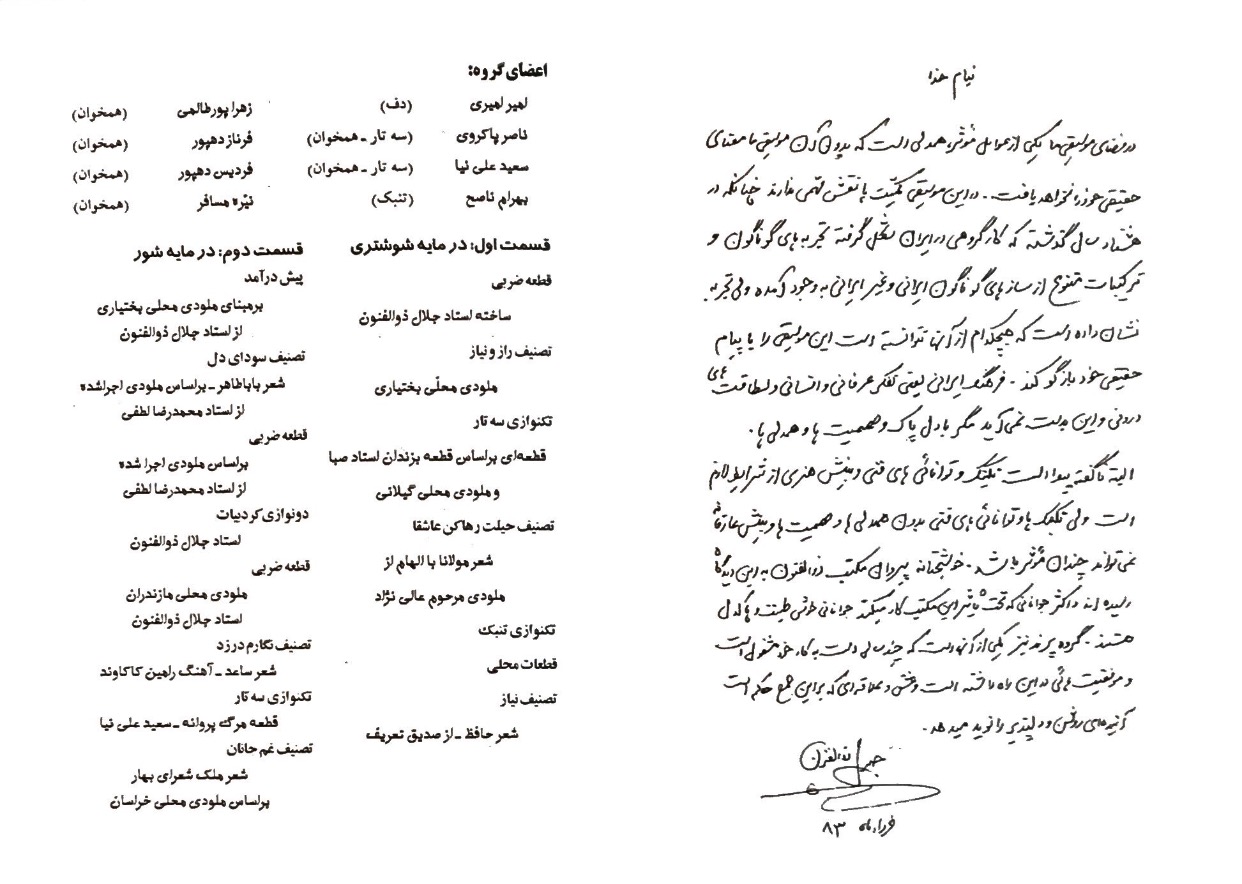 بنام خدا
در فضای موسیقی ما یکی از عوامل مؤثر، همدلی است که بدون آن موسیقی ما معنای
حقیقی خود را نخواهد یافت. در این موسیقی کمیّت ها نقش مهمی ندارند چنانکه در
هشتاد سال گذشته که کار گروهی در ایران شکل گرفته تجربه های گوناگون و
ترکیبات متنوع از سازهای گوناگون ایرانی و غیر ایرانی به وجود آمده ولی تجربه
نشان داده است که هیچکدام از آنها نتوانسته است این موسیقی را با پیام
حقیقی خود بازگو کند. فرهنگ ایرانی یعنی تفکر عرفانی و انسانی و لطافت های
درونی و این بدست نمی آید مگر با دل پاک و صمیمیت ها و همدلی ها.
البته ناگفته پیداست تکنیک و توانائی های فنی و بینش هنری از شرایط لازم
است ولی تکنیک ها و توانائی های فنی بدون همدلی ها و صمیمیت ها و بینش عارفانه
نمی تواند چندان مؤثر باشد. خوشبختانه پیروان مکتب ذوالفنون به این دیدگاه
رسیده اند و اکثر جوانانی که تحت تاثیر این مکتب کار میکنند جوانانی خوش طینت و پاکدل
هستند. گروه پرند نیز یکی از آنهاست که چند سالی است به کار خود مشغول است
و موفقیت هائی در این راه یافته است و عشق و علاقه ای که بر این جمع حاکم است
آینده ای روشن و دلپذیر را نوید میدهد.
جلال ذوالفنون
خرداد ماه ۸۳
اعضای گروه:
امیر امیری (دف)
ناصر پاکروی (سه تار ـ همخوان)
سعید علی نیا (سه تار ـ همخوان)
بهرام ناصح (تنبک)
زهرا پورطالمی (همخوان)
فرناز دهپور (همخوان)
فردیس دهپور (همخوان)
نیّره مسافر (همخوان)
قسمت اول: در مایه شوشتری
قطعه ضربی
ساخته استاد جلال ذوالفنون
تصنیف راز و نیاز
ملودی محلّی بختیاری
تکنوازی سه تار
قطعه‌ای براساس قطعه بزندان استاد صبا
و ملودی محلی گیلانی
تصنیف حیلت رها کن عاشقا
شعر مولانا با الهام از
ملودی مرحوم عالی نژاد
تکنوازی تنبک
قطعات محلی
تصنیف نیاز
شعر حافظ ـ از صدیق تعریف
قسمت دوم: در مایه شور
پیش درآمد
برمبنای ملودی محلی بختیاری
از استاد جلال ذوالفنون
تصنیف سودای دل
شعر باباطاهر ـ براساس ملودی اجراشده
از استاد محمدرضا لطفی
قطعه ضربی
براساس ملودی اجرا شده
از استاد محمدرضا لطفی
دونوازی کردبیات
استاد جلال ذوالفنون
قطعه ضربی
ملودی محلی مازندران
استاد جلال ذوالفنون
تصنیف نگارم درزد
شعر ساعد ـ آهنگ رامین کاکاوند
تکنوازی سه تار
قطعه مرگ پروانه ـ سعید علی نیا
تصنیف غم جانان
شعر ملک شعرای بهار
براساس ملودی محلی خراسان